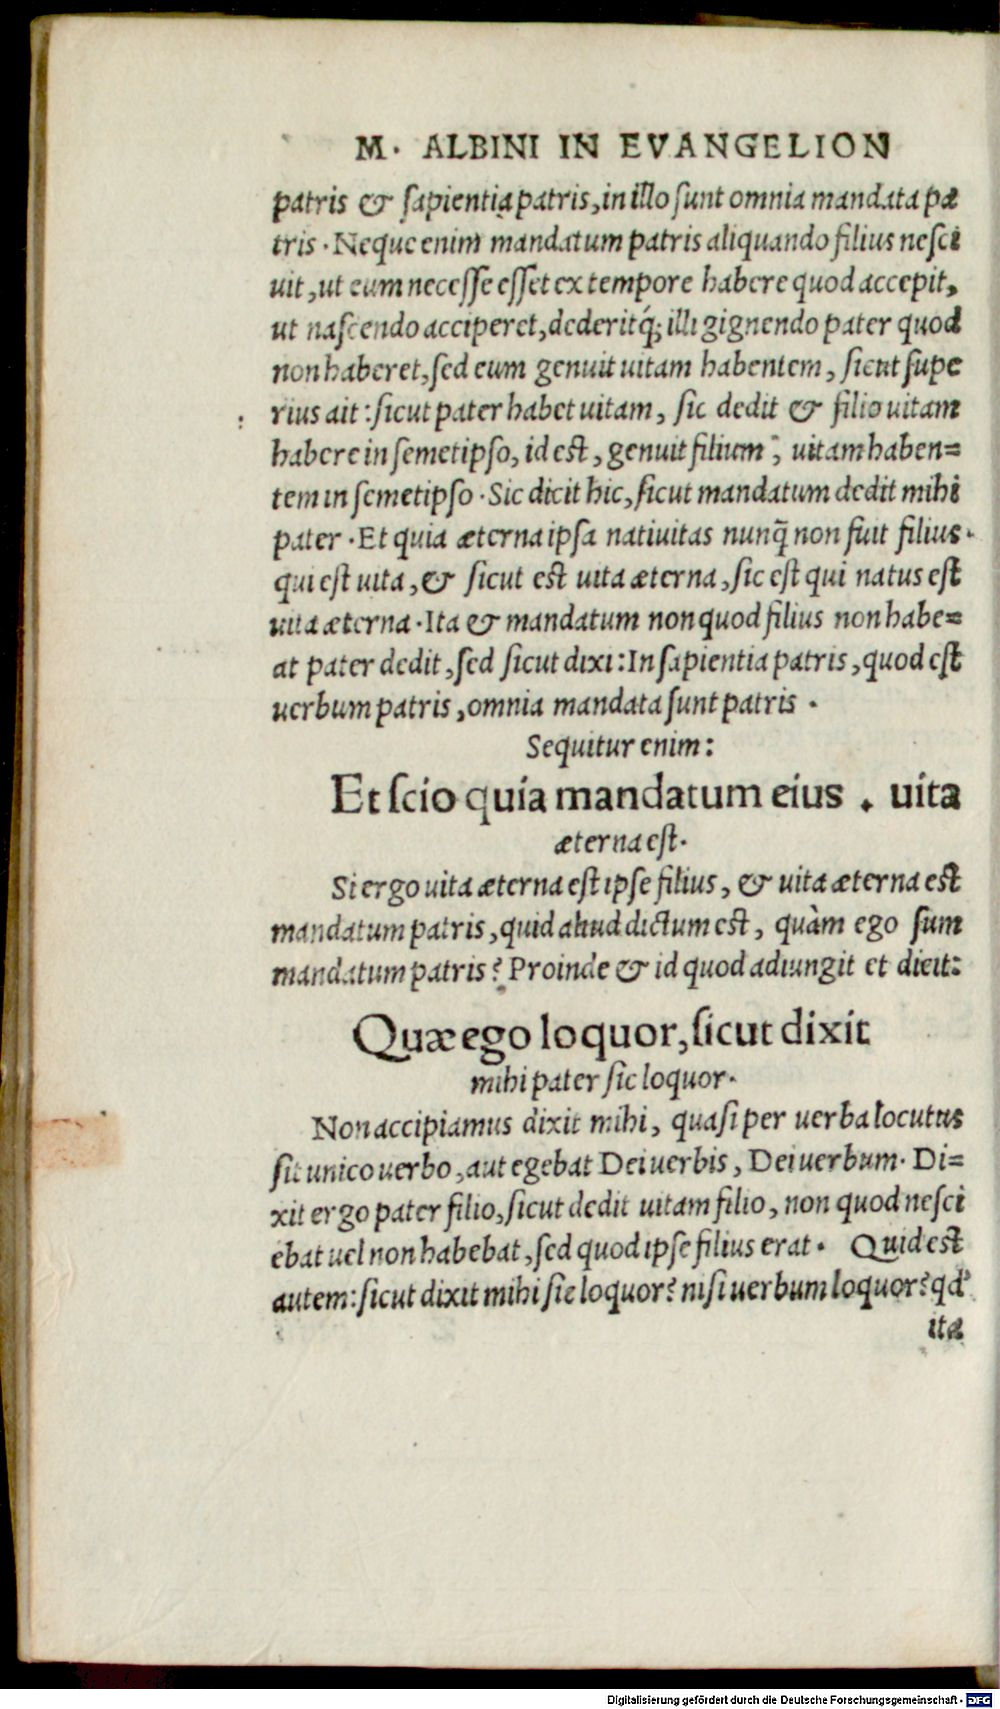 M. ALBINI IN EVANGELION
patris & sapientia patris, in illo sunt omnia mandata pa
tris. Neque enim mandatum patris aliquando filius nesci
uit, ut eum necesse esset ex tempore habere quod accepit,
ut nascendo acciperet, dederitq́; illi gignendo pater quod
non haberet, sed eum genuit uitam habentem, sicut supe
rius ait: sicut pater habet uitam, sic dedit & filio uitam
habere in semetipso, id est, genuit filium, uitam haben=
tem in semetipso. Sic dicit hic, sicut mandatum dedit mihi
pater. Et quia æterna ipsa nativitas nunq̃ non fuit filius.
qui est uita, & sicut est uita æterna, sic est qui natus est
uita æterna. Ita & mandatum non quod filius non habe=
at pater dedit, sed sicut dixi: In sapientia patris, quod est
uerbum patris, omnia mandata sunt patris.
Sequitur enim:
Et scio quia mandatum eius . uita
æterna est.
Si ergo uita æterna est ipse filius, & uita æterna est
mandatum patris, quid aliud dictum est, quàm ego sum
mandatum patris? Proinde & id quod adiungit et dicit:
Quæ ego loquor, sicut dixit
mihi pater sic loquor.
Non accipiamus dixit mihi, quasi per uerba locutus
sit unico uerbo, aut egebat Dei uerbis, Dei uerbum. Di=
xit ergo pater filio, sicut dedit uitam filio, non quod nesci
ebat uel non habebat, sed quod ipse filius erat. Quid est
autem: sicut dixit mihi sic loquor? nisi uerbum loquor? qd'
ita
Digitalisierung gefördert durch die Deutsche Forschungsgemeinschaft - DFG